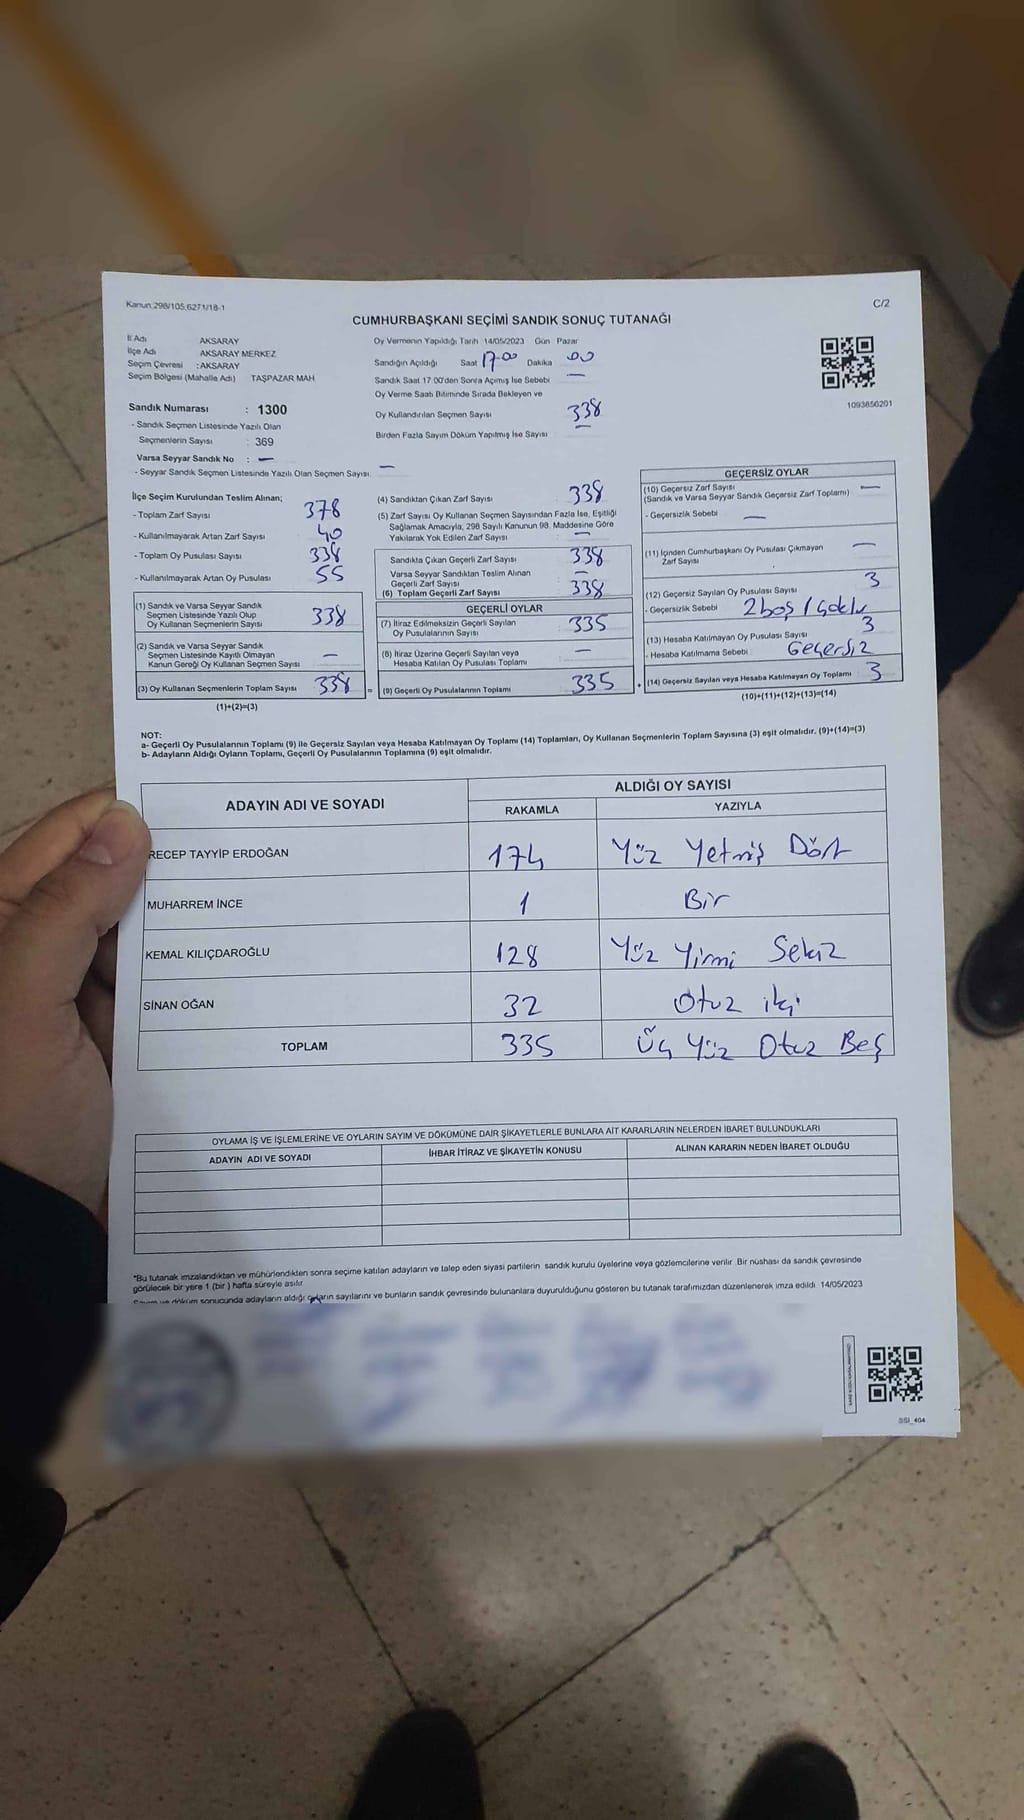 Kanun:298/105;6271/18-1
C/2
CUMHURBAŞKANI SEÇİMİ SANDIK SONUÇ TUTANAĞI
İl Adı AKSARAY
İlçe Adı AKSARAY MERKEZ
Seçim Çevresi : AKSARAY
Seçim Bölgesi (Mahalle Adı) TAŞPAZAR MAH
Sandık Numarası : 1300
- Sandık Seçmen Listesinde Yazılı Olan
Seçmenlerin Sayısı : 369
Varsa Seyyar Sandık No : —
- Seyyar Sandık Seçmen Listesinde Yazılı Olan Seçmen Sayısı: —
Oy Vermenin Yapıldığı Tarih 14/05/2023 Gün Pazar
Sandığın Açıldığı Saat 17:00 Dakika 00
Sandık Saat 17.00'den Sonra Açımış İse Sebebi —
Oy Verme Saati Bitiminde Sırada Bekleyen ve
Oy Kullandırılan Seçmen Sayısı 338
Birden Fazla Sayım Döküm Yapılmış İse Sayısı —
1093850201
İlçe Seçim Kurulundan Teslim Alınan;
- Toplam Zarf Sayısı 378
- Kullanılmayarak Artan Zarf Sayısı 40
- Toplam Oy Pusulası Sayısı 338
- Kullanılmayarak Artan Oy Pusulası 55
(1) Sandık ve Varsa Seyyar Sandık
Seçmen Listesinde Yazılı Olup
Oy Kullanan Seçmenlerin Sayısı 338
(2) Sandık ve Varsa Seyyar Sandık
Seçmen Listesinde Kayıtlı Olmayan
Kanun Gereği Oy Kullanan Seçmen Sayısı —
(3) Oy Kullanan Seçmenlerin Toplam Sayısı 338
(1)+(2)=(3)
(4) Sandıktan Çıkan Zarf Sayısı 338
(5) Zarf Sayısı Oy Kullanan Seçmen Sayısından Fazla İse, Eşitliği
Sağlamak Amacıyla, 298 Sayılı Kanunun 98. Maddesine Göre
Yakılarak Yok Edilen Zarf Sayısı —
Sandıkta Çıkan Geçerli Zarf Sayısı 338
Varsa Seyyar Sandıktan Teslim Alınan
Geçerli Zarf Sayısı —
(6) Toplam Geçerli Zarf Sayısı 338
GEÇERLİ OYLAR
(7) İtiraz Edilmeksizin Geçerli Sayılan
Oy Pusulalarının Sayısı 335
(8) İtiraz Üzerine Geçerli Sayılan veya
Hesaba Katılan Oy Pusulası Toplamı —
= (9) Geçerli Oy Pusulalarının Toplamı 335
GEÇERSİZ OYLAR
(10) Geçersiz Zarf Sayısı —
(Sandık ve Varsa Seyyar Sandık Geçersiz Zarf Toplamı)
- Geçersizlik Sebebi —
(11) İçinden Cumhurbaşkanı Oy Pusulası Çıkmayan
Zarf Sayısı —
(12) Geçersiz Sayılan Oy Pusulası Sayısı 3
- Geçersizlik Sebebi 2 boş 1 çoklu
(13) Hesaba Katılmayan Oy Pusulası Sayısı 3
- Hesaba Katılmama Sebebi : Geçersiz
+ (14) Geçersiz Sayılan veya Hesaba Katılmayan Oy Toplamı 3
(10)+(11)+(12)+(13)=(14)
NOT:
a- Geçerli Oy Pusulalarının Toplamı (9) ile Geçersiz Sayılan veya Hesaba Katılmayan Oy Toplamı (14) Toplamları, Oy Kullanan Seçmenlerin Toplam Sayısına (3) eşit olmalıdır. (9)+(14)=(3)
b- Adayların Aldığı Oyların Toplamı, Geçerli Oy Pusulalarının Toplamına (9) eşit olmalıdır.
ADAYIN ADI VE SOYADI ALDIĞI OY SAYISI
RAKAMLA YAZIYLA
RECEP TAYYİP ERDOĞAN 174 Yüz Yetmiş Dört
MUHARREM İNCE 1 Bir
KEMAL KILIÇDAROĞLU 128 Yüz Yirmi Sekiz
SİNAN OĞAN 32 Otuz iki
TOPLAM 335 Üç Yüz Otuz Beş
OYLAMA İŞ VE İŞLEMLERİNE VE OYLARIN SAYIM VE DÖKÜMÜNE DAİR ŞİKAYETLERLE BUNLARA AİT KARARLARIN NELERDEN İBARET BULUNDUKLARI
ADAYIN ADI VE SOYADI İHBAR İTİRAZ VE ŞİKAYETİN KONUSU ALINAN KARARIN NEDEN İBARET OLDUĞU
*Bu tutanak imzalandıktan ve mühürlendikten sonra seçime katılan adayların ve talep eden siyasi partilerin sandık kurulu üyelerine veya gözlemcilerine verilir. Bir nüshası da sandık çevresinde
görülecek bir yere 1 (bir) hafta süreyle asılır.
Sayım ve döküm sonucunda adayların aldığı oyların sayılarını ve bunların sandık çevresinde bulunanlara duyurulduğunu gösteren bu tutanak tarafımızdan düzenlenerek imza edildi. 14/05/2023
SSI_404